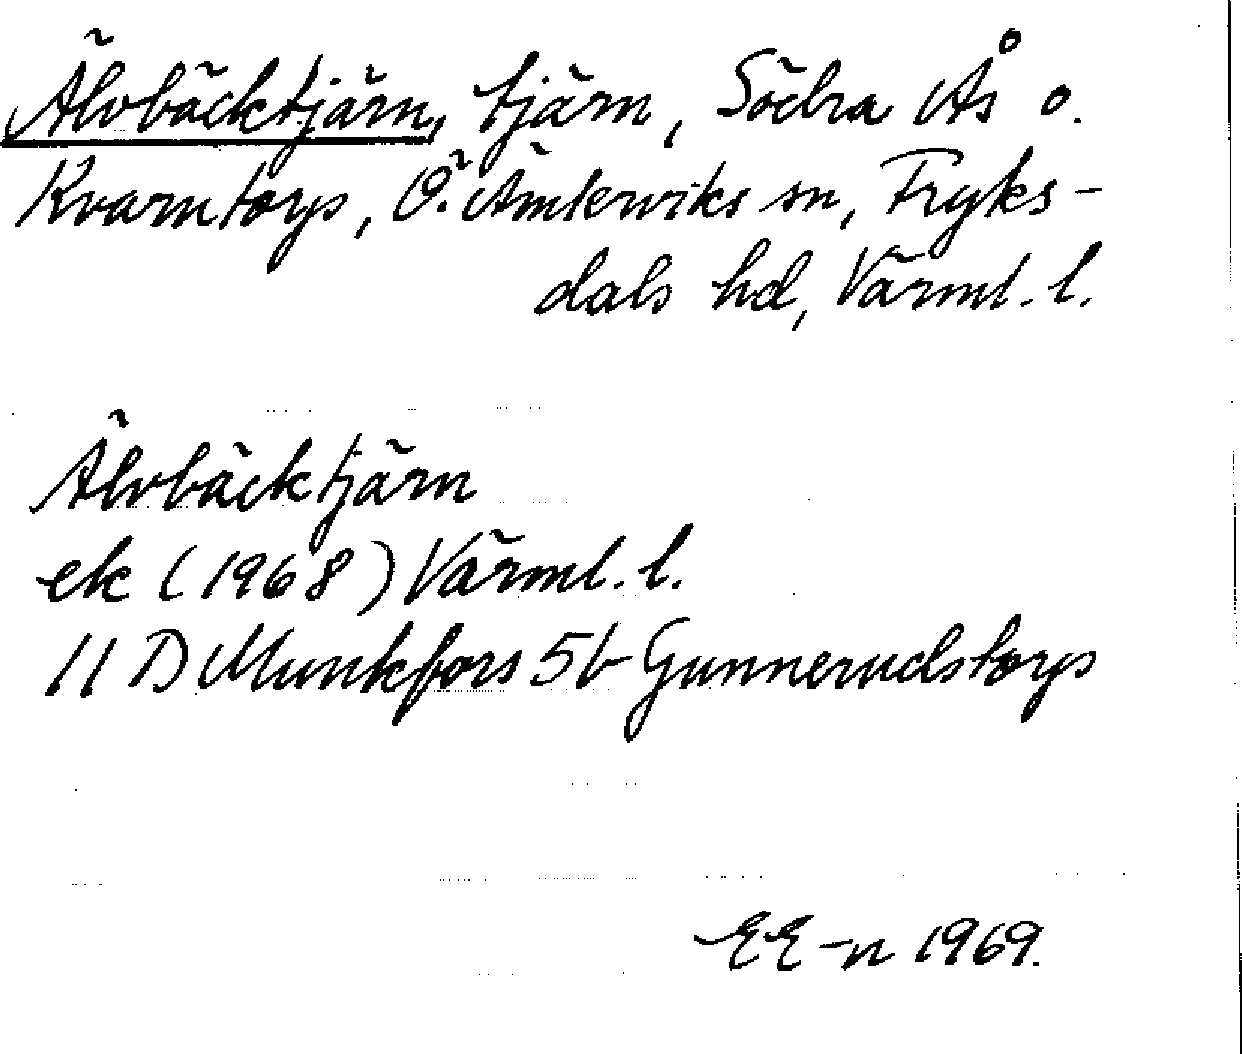 Älvbäcktjärn, tjärn, Södra Ås o.
Kvarntorp, Ö. Ämterviks sn, Fryks-
dals hd, Värml. l.
Älvbäcktjärn
ek (1968) Värml. l.
11 D Munkfors 5b Gunnerudstorp
EE-n 1969.